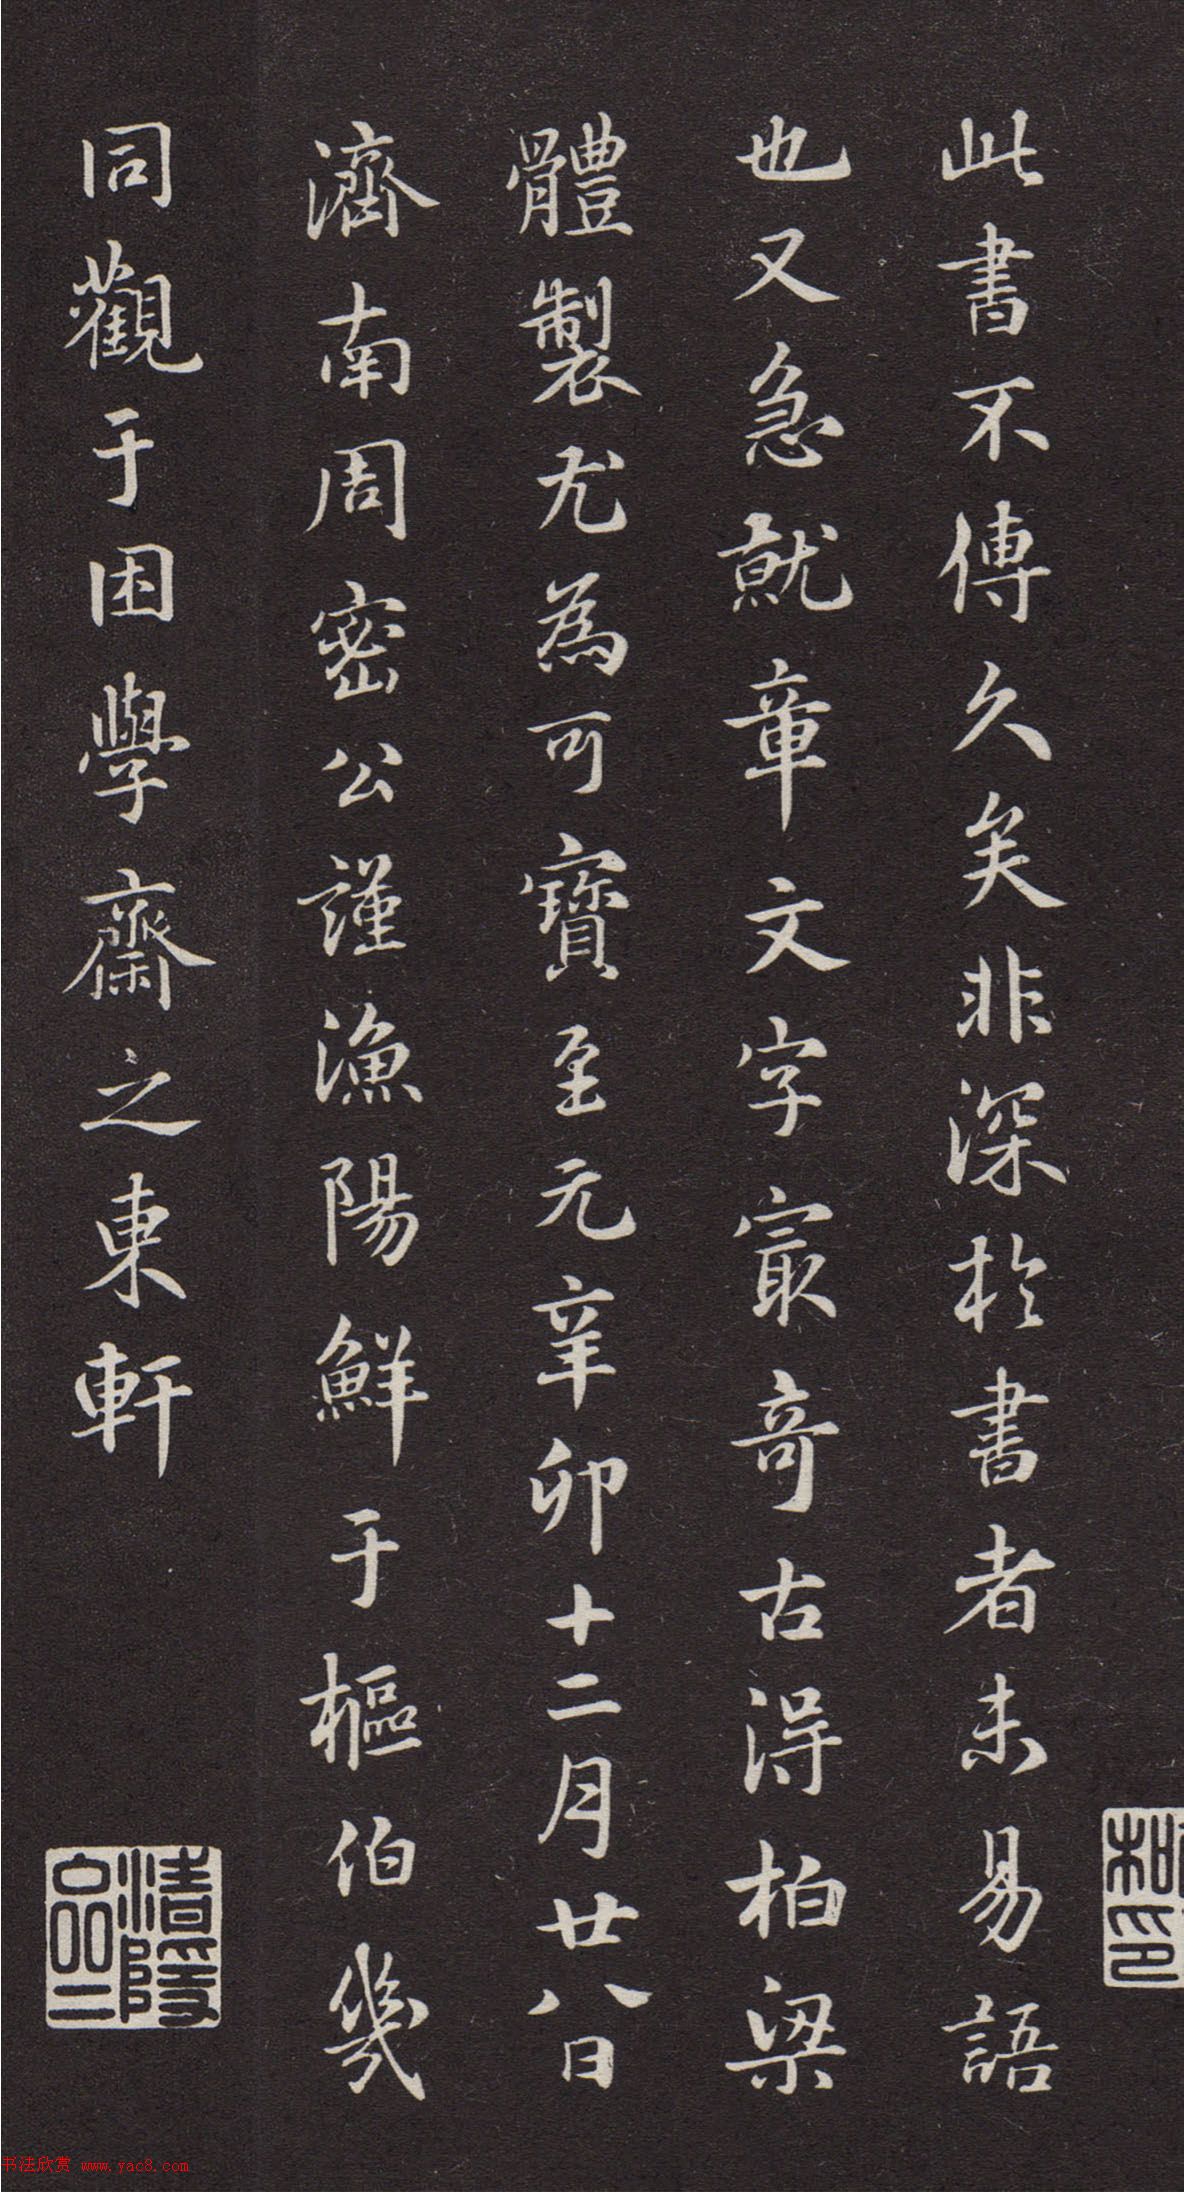 此書不傳久矣非深於書者未易語
也又急就章文字冣奇古淂柏梁
體製尤為可寶至元辛卯十二月廿八日
濟南周密公謹漁陽鮮于樞伯幾
同觀于困學齋之東軒
书法欣赏 www.yac8.com